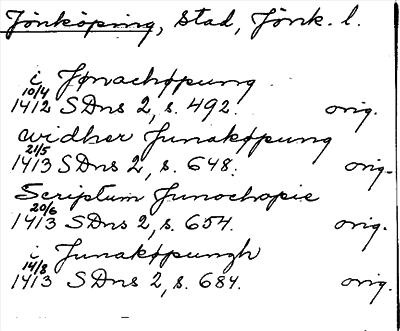 Jönköping, stad, Jönk. l.
i Jønachøpung
10/4
1412 SDns 2, s. 492. orig.
widher Junakøpung
21/5
1413 SDns 2, s. 648. orig.
Scriptum Junochopie
20/6
1413 SDns 2, s. 654. orig.
i Junakøpungh
14/8
1413 SDns 2, s. 684. orig.